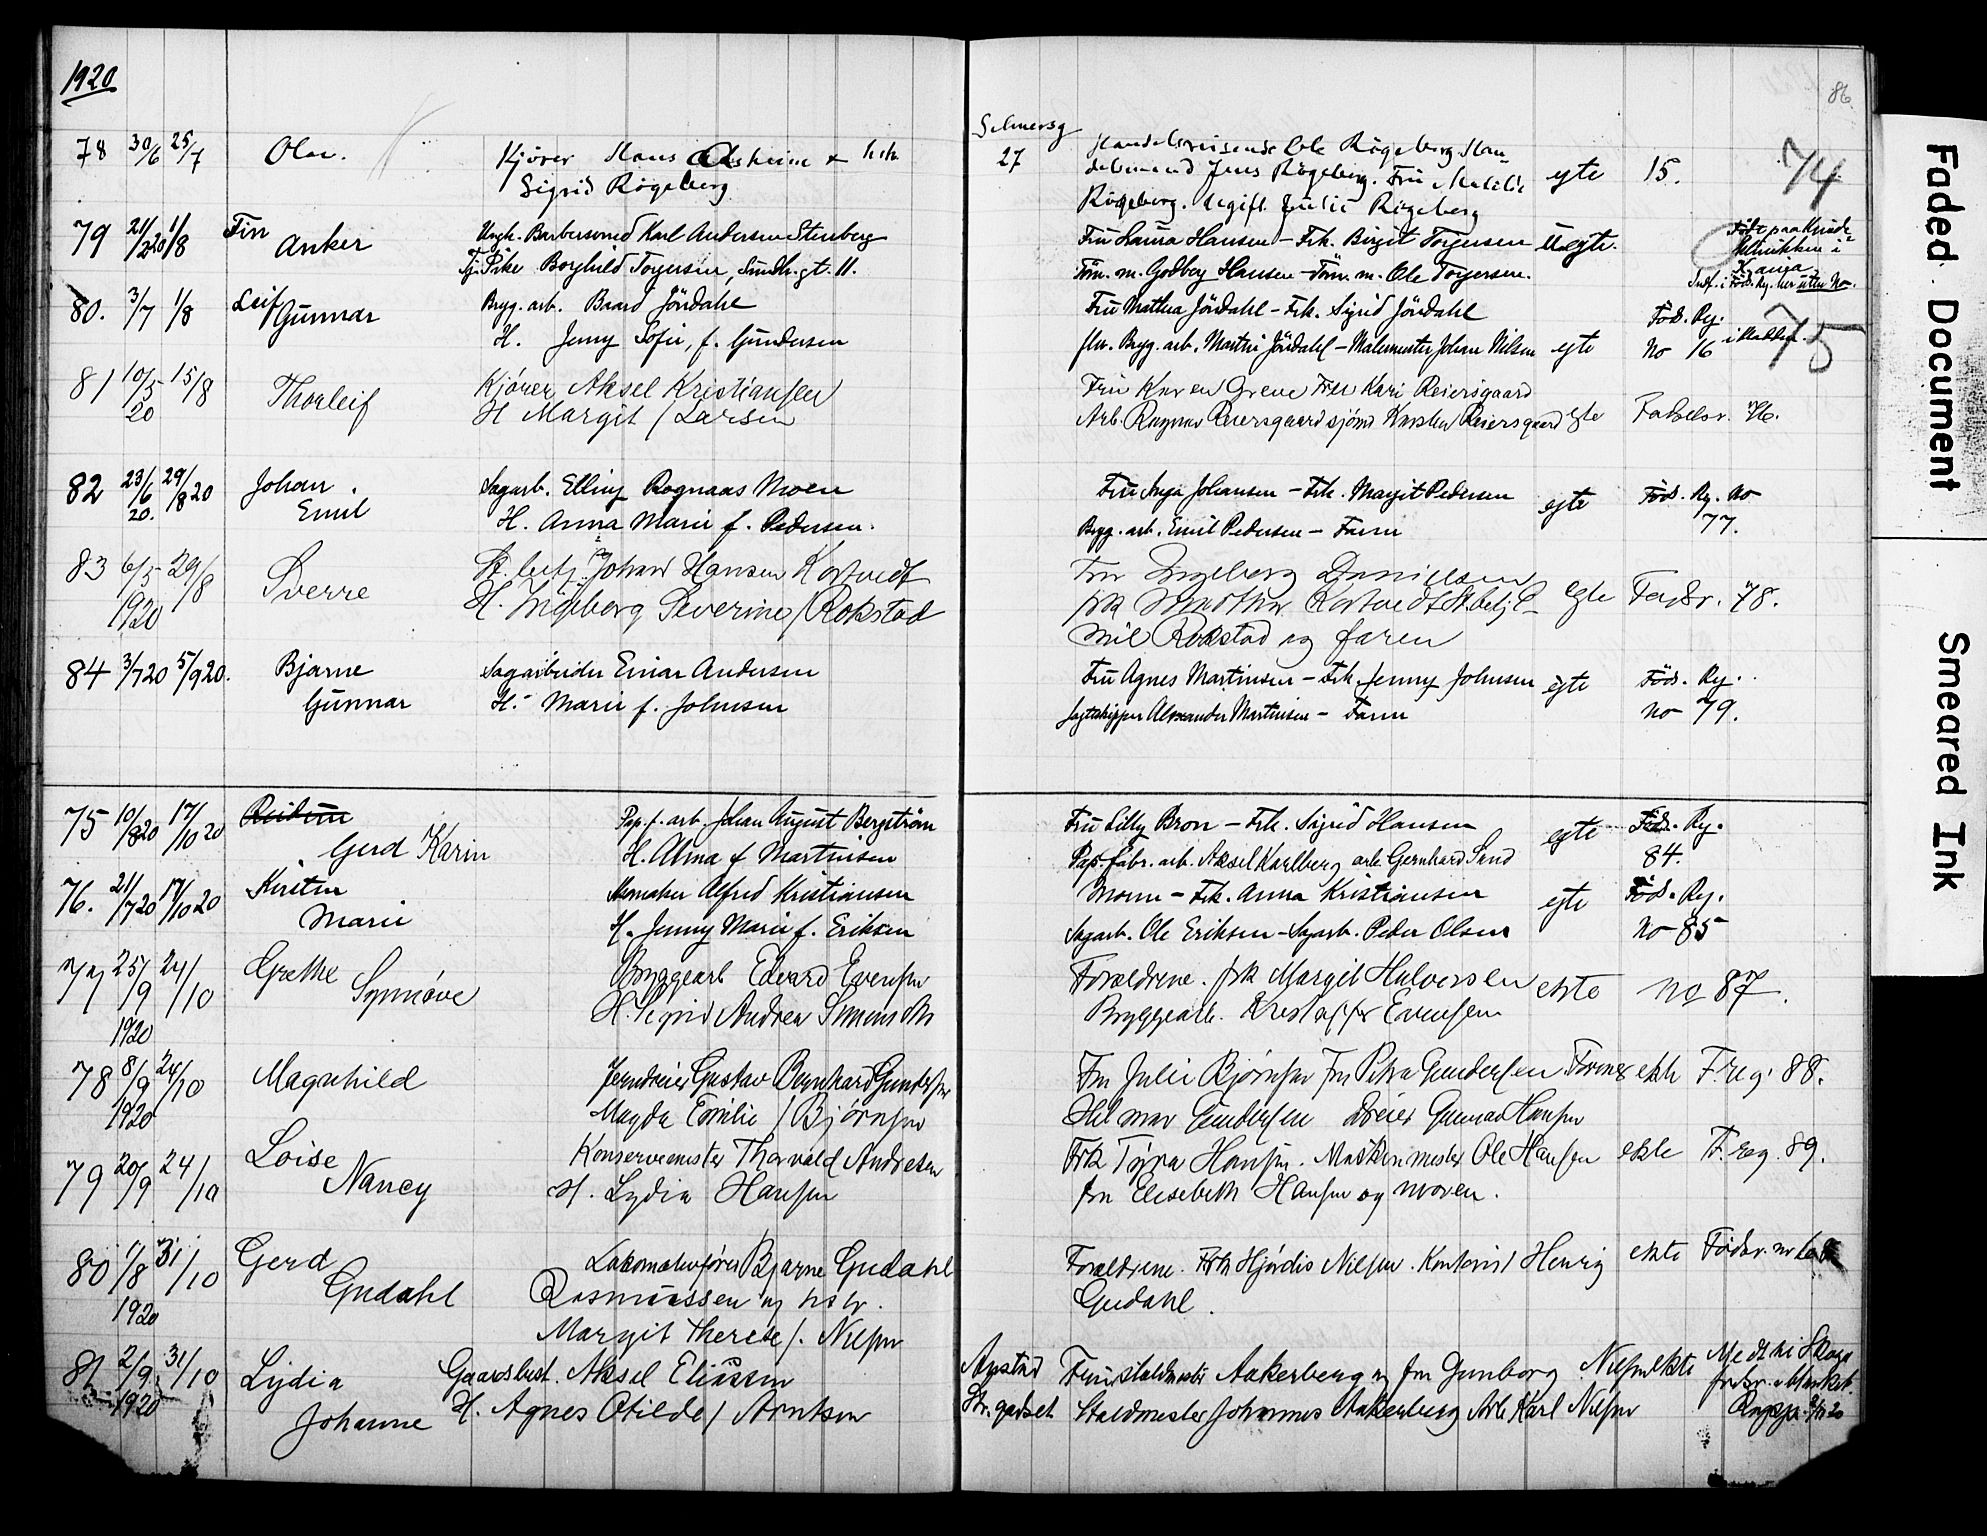 1920
86
78 30/6 25/7 Olav. Kjører Hans
Sigrid Røgeberg
Selmersg
27
Handelsreisende Ole Røgeberg Han-
delsmand Jens Røgeberg. Fru
Røgeberg. Røgeberg
egte 15. 74
79 21/2 20 1/8 Fin Anker
Ungk. Barbersvend Karl Andersen Stenberg
Tj. Pike Borghild Torgersen, Sundh.gt. 11.
Fru Laura Hansen – Frk. Birgit Torgersen
Tøm. m. Godberg Hansen – Tøm. m. Ole Torgersen.
Uegte.
Født paa Kvinde
klinikken i
Kania
Indf. i Føds. Rg. her uten No.
80. 3/7 1/8 Leif Gunnar
Bryg. arb. Baard Jördahl
H. Jenny Sofie, f. Gundersen
Fru Mathea Jördahl – Frk. Sigrid Jördahl
Bryg. arb. Martin Jördahl – Malermester Johan Nilsen
egte
Föd. Rg.
No 16 i klokken.
75
81 10/5 20 15/8 Thorleif
Kjører Aksel Kristiansen
H Margit f Larsen
Fru Karen Greve Fru Kari Reiersgaard
Arb. Ragnar Reiersgaard sjøm Karsten Reiersgaard
egte Fødselsr. 76.
82 23/6 20. 29/8 20 Johan Emil
Sagarb. Elling Rognaas Moen
H. Anna Marie f. Pedersen.
Fru Inga Johansen – Frk. Margit Pedersen
Bryg. arb. Emil Pedersen – Faren
egte
Föd. Rg. No
77.
83 6/5 1920 29/8 Sverre
St. betj. Johan Hansen Kortvedt
H. Ingeborg Severine f Rokstad
Fru Ingeborg Danielsen
frk Kortvedt St.betj. E-
mil Rokstad og faren
egte Fødsr. 78.
84 3/7 20 5/9 20. Bjarne Gunnar
Sagarbeider Einar Andersen
H. Marie f. Johnsen
Fru Agnes Martinsen – Frk. Jenny Johnsen
Jagtskipper Alexander Martinsen – Faren
egte
Föds. Rg.
No 79.
75 10/8 20 17/10 20 Reidun Gerd Karin
Pap. f. arb. Johan August Bergström
H. Alma f Martinsen
Fru Lilly Bron – Frk. Sigrid Hansen
Pap. fabr. arb. Aksel Karlberg arb. Gernhard Sand
egte
Föds. Rg.
84.
76. 21/7 20 17/10 20 Kirsten Marie
Alfred Kristiansen
H. Jenny Marie f. Eriksen
Moren – Frk. Anna Kristiansen
Sagarb. Ole Eriksen – Sagarb. Peder Olsen
egte
Föd. Rg.
No 85
77 25/9 1920 24/10 Grethe Synnøve
Bryggearb Edvard Evensen
H. Sigrid Andrea
Forældrene. frk Margit Halvorsen
Bryggearb. Kristoffer Evensen
ekte no 87.
78 8/9 1920 24/10 Magnhild
Jerndreier Gustav Bernhard Gundersen
Magda Emilie f Bjørnsen
Fru Julie Bjørnsen fru Petra Gundersen Former
Hilmar Gundersen Dreier Gunnar Hansen
ekte F.reg. 88.
79 20/9 24/10 Loise Nancy
Konservemester Thorvald Andresen
H. Lydia Hansen
Frk Tyra Hansen. Maskinmester Ole Hansen
fru Elisebeth Hansen og moren.
ekte F.reg. 89.
80 1/8 1920 31/10 Gerd Gudahl
Lokomotivfører Bjarne Gudahl
Rasmussen og hstr.
Margit Therese f. Nilsen
Forældrene. Frk Hjördis Nilsen. Kontorist Henrig
Gudahl.
ekte Fødsr. nr
81 2/9 1920 31/10 Lydia Johanne
Gaardsbest. Aksel Eliassen
H. Agnes Otilde f Arntsen
Aystad
Str. gadset
Fru staldmester Aakerberg og fru Gunborg Nilsen
Staldmester Johannes Aakerberg Arb Karl Nilsen
ekte
Faded Document
Smeared Ink